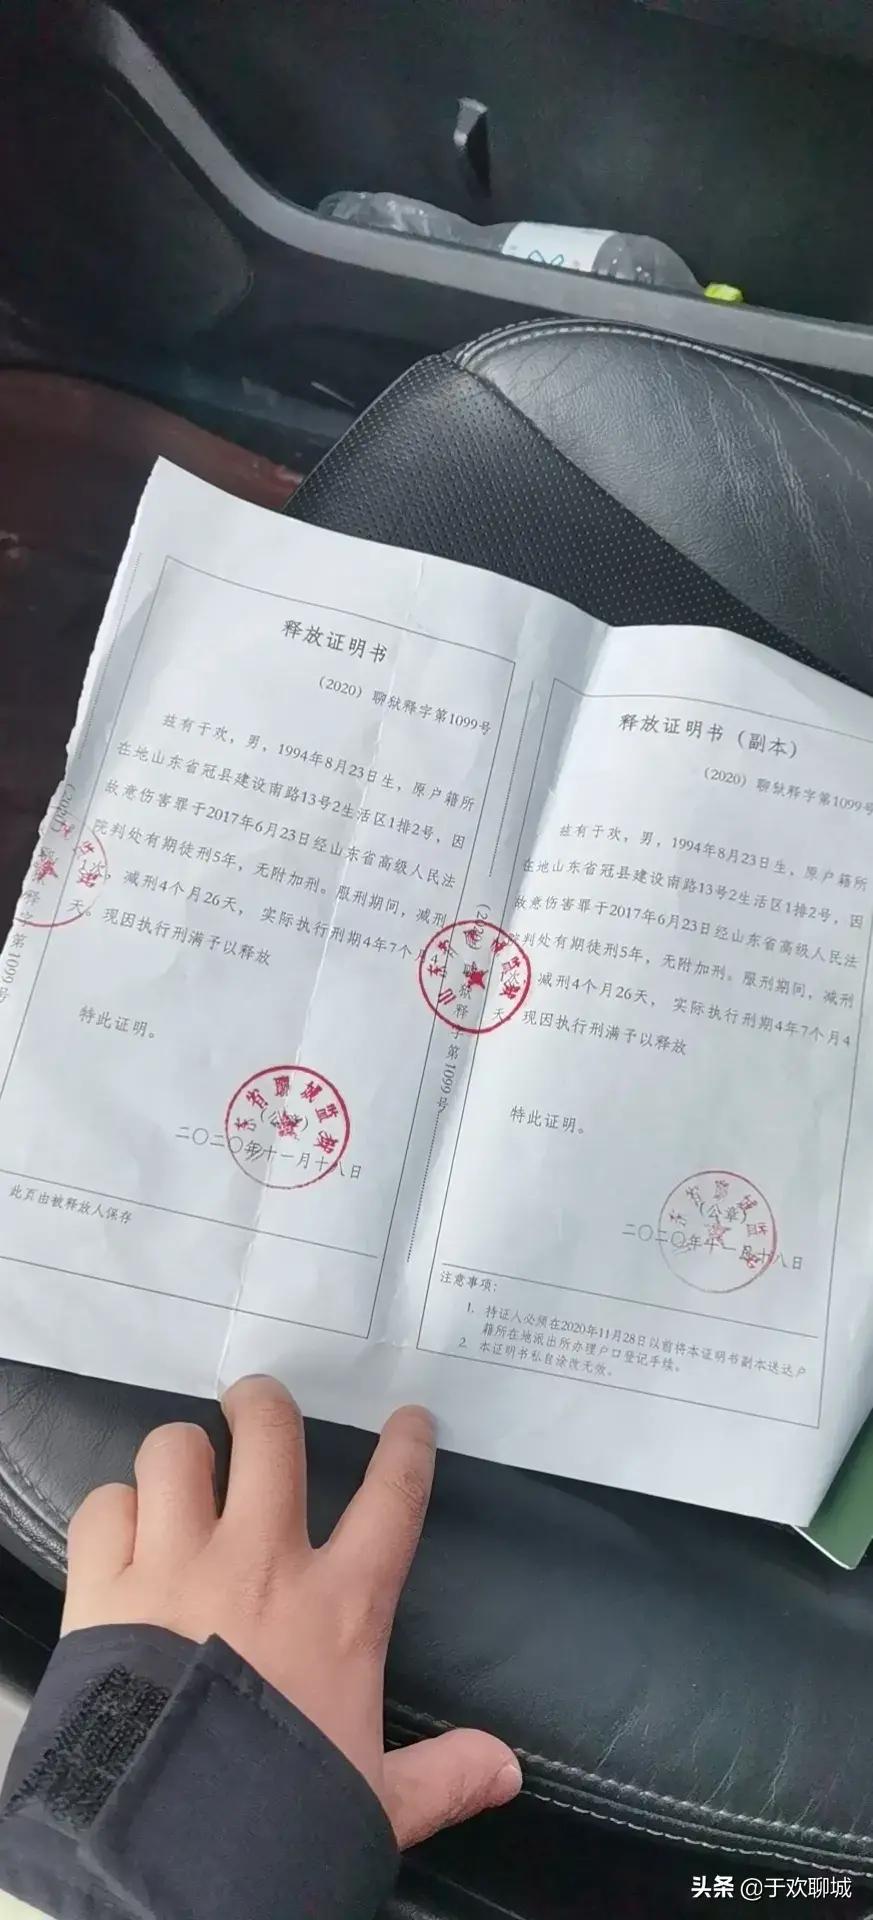 释放证明书
(2020)聊狱释字第1099号
兹有于欢，男，1994年8月23日生，原户籍所
在地山东省冠县建设南路13号2生活区1排2号，因
故意伤害罪于2017年6月23日经山东省高级人民法
院判处有期徒刑5年，无附加刑。服刑期间，减刑
1次，减刑4个月26天， 实际执行刑期4年7个月4
天。现因执行刑满予以释放
特此证明。
省聊城监狱
(公章)
二〇二〇年十一月十八日
此页由被释放人保存
释字第1099号
聊狱释字第1099号
释放证明书（副本）
(2020)聊狱释字第1099号
兹有于欢，男，1994年8月23日生，原户籍所
在地山东省冠县建设南路13号2生活区1排2号，因
故意伤害罪于2017年6月23日经山东省高级人民法
院判处有期徒刑5年，无附加刑。服刑期间，减刑
1次，减刑4个月26天， 实际执行刑期4年7个月4
天。现因执行刑满予以释放
特此证明。
东省聊城监狱
(公章)
二〇二〇年十一月十八日
注意事项：
1. 持证人必须在2020年11月28日以前将本证明书副本送达户
籍所在地派出所办理户口登记手续。
2. 本证明书私自涂改无效。
头条 @于欢聊城